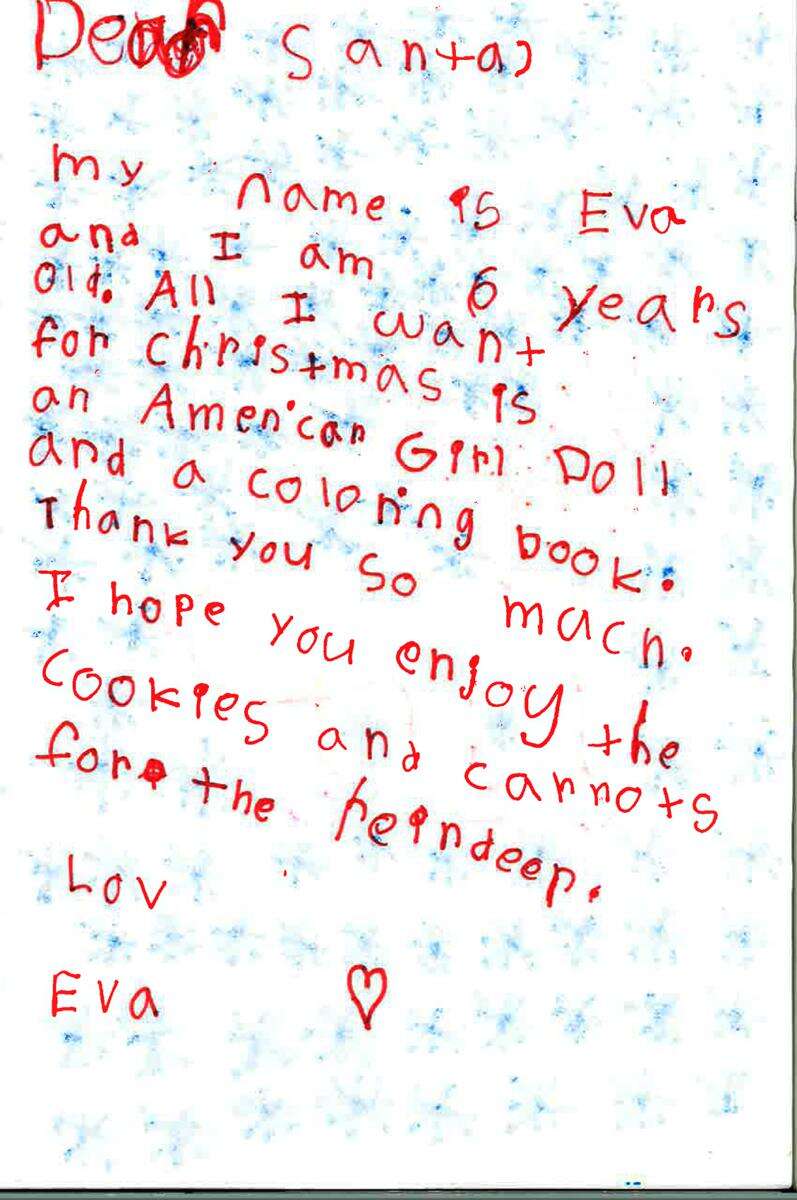 Dear Santa,
my name is Eva
and I am 6 years
old. All I want
for christmas is
an American Girl Doll
and a coloring book.
Thank you so mach.
I hope you enjoy the
cookies and carrots
for the reindeer.
Lov
Eva